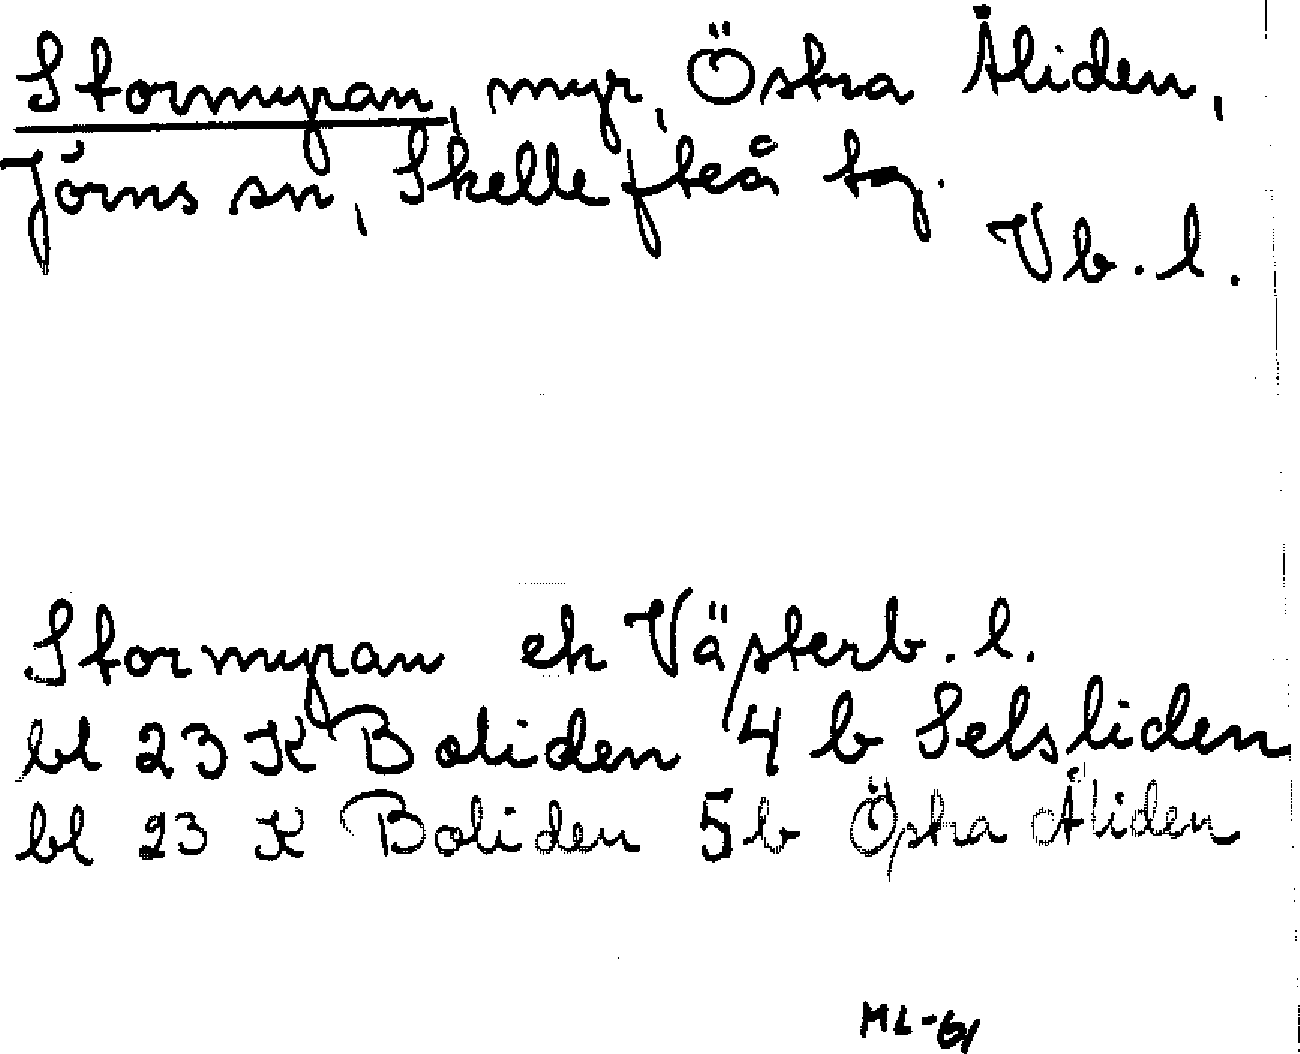 Stormyran, myr, Östra Åliden,
Jörns sn, Skellefteå tg.
Vb. l.
Stormyran ek Västerb. l.
bl 23 K Boliden 4 b Selsliden
bl 23 K Boliden 5b Östra Åliden
ML-61